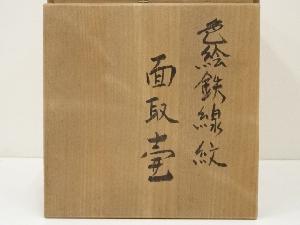 色絵鉄線紋
面取壷